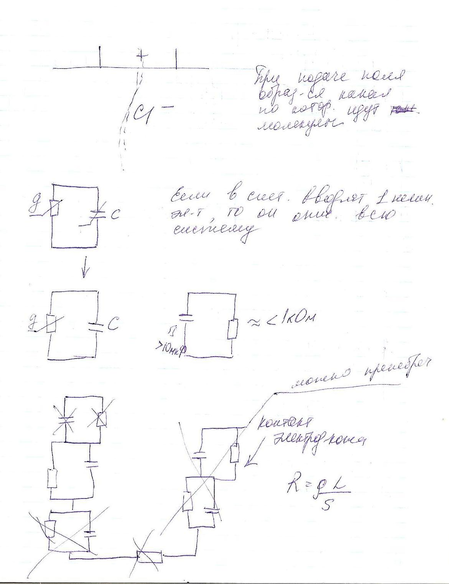 +
Cl⁻
При подаче поля
образ-ся канал
по котор. идут
молекулы
g
C
Если в сист. вводят 1 нелин.
эл-т, то он опис. всю
систему
g
C
>10мкФ
≈<1кОм
можно пренебречь
контакт
электрод кожа
R = g L
S